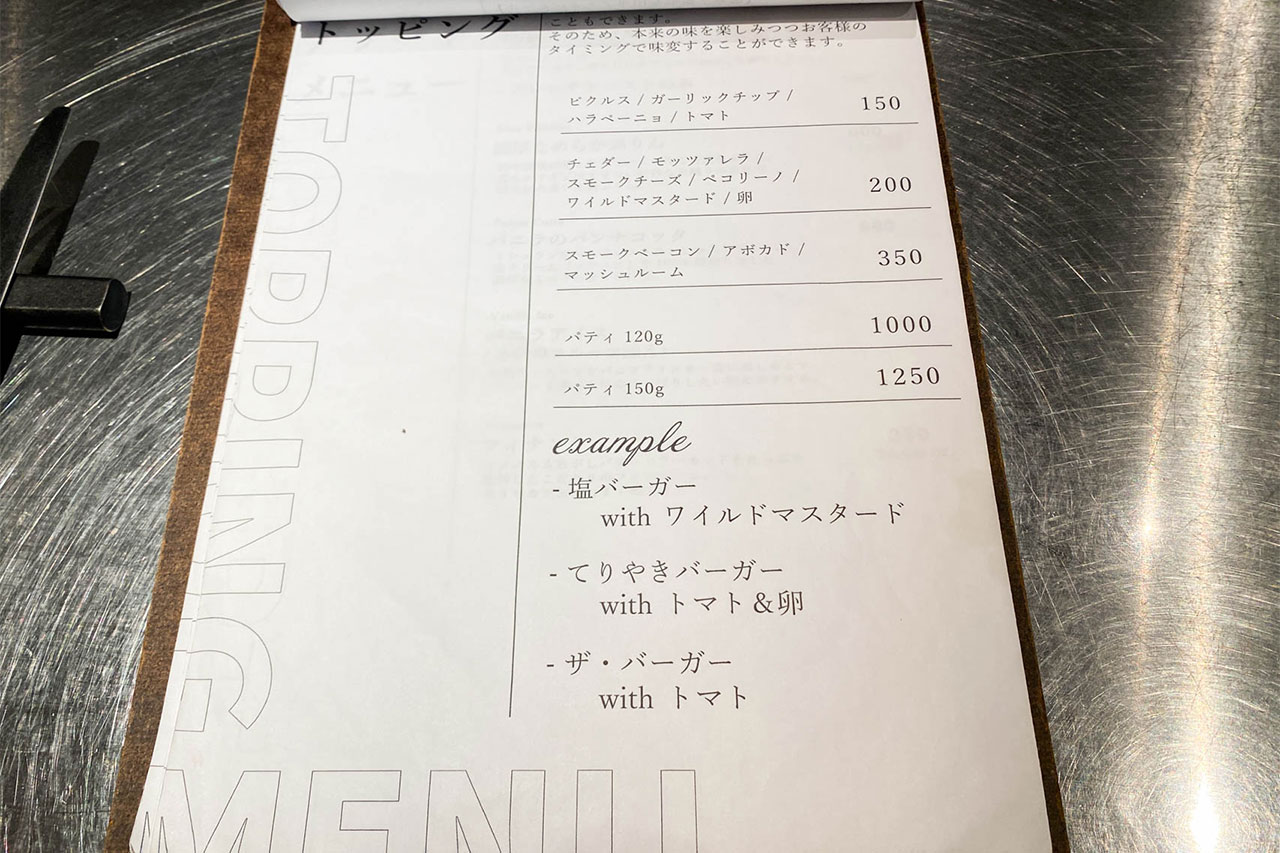 トッピング
こともできます。
そのため、本来の味を楽しみつつお客様の
タイミングで味変することができます。
ピクルス / ガーリックチップ /
ハラペーニョ / トマト
150
チェダー / モッツァレラ /
スモークチーズ / ペコリーノ /
ワイルドマスタード / 卵
200
スモークベーコン / アボカド /
マッシュルーム
350
パティ 120g
1000
パティ 150g
1250
example
- 塩バーガー
with ワイルドマスタード
- てりやきバーガー
with トマト&卵
- ザ・バーガー
with トマト
TOPPING
MENU